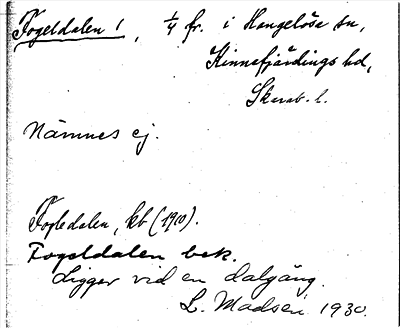 Fogeldalen 1, 1/4 fr. i Hangelösa sn,
Kinnefjärdings hd,
Skarab. l.
Nämnes ej.
Fogledalen, kb (1910).
Fogeldalen bek.
Ligger vid en dalgång.
L. Madsén 1930.